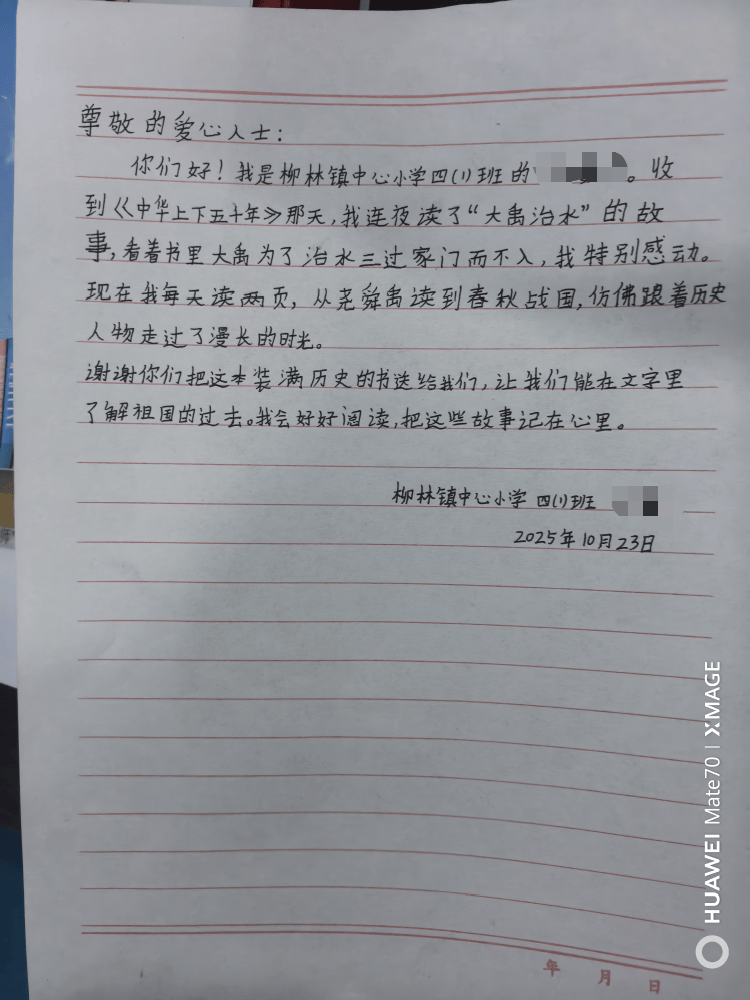 尊敬的爱心人士：
你们好！我是柳林镇中心小学四(1)班的。收
到《中华上下五十年》那天，我连夜读了“大禹治水”的故
事，看着书里大禹为了治水三过家门而不入，我特别感动。
现在我每天读两页，从尧舜禹读到春秋战国，仿佛跟着历史
人物走过了漫长的时光。
谢谢你们把这本装满历史的书送给我们，让我们能在文字里
了解祖国的过去。我会好好阅读，把这些故事记在心里。
柳林镇中心小学 四(1)班
2025年10月23日
年 月 日
HUAWEI Mate70 | XMAGE